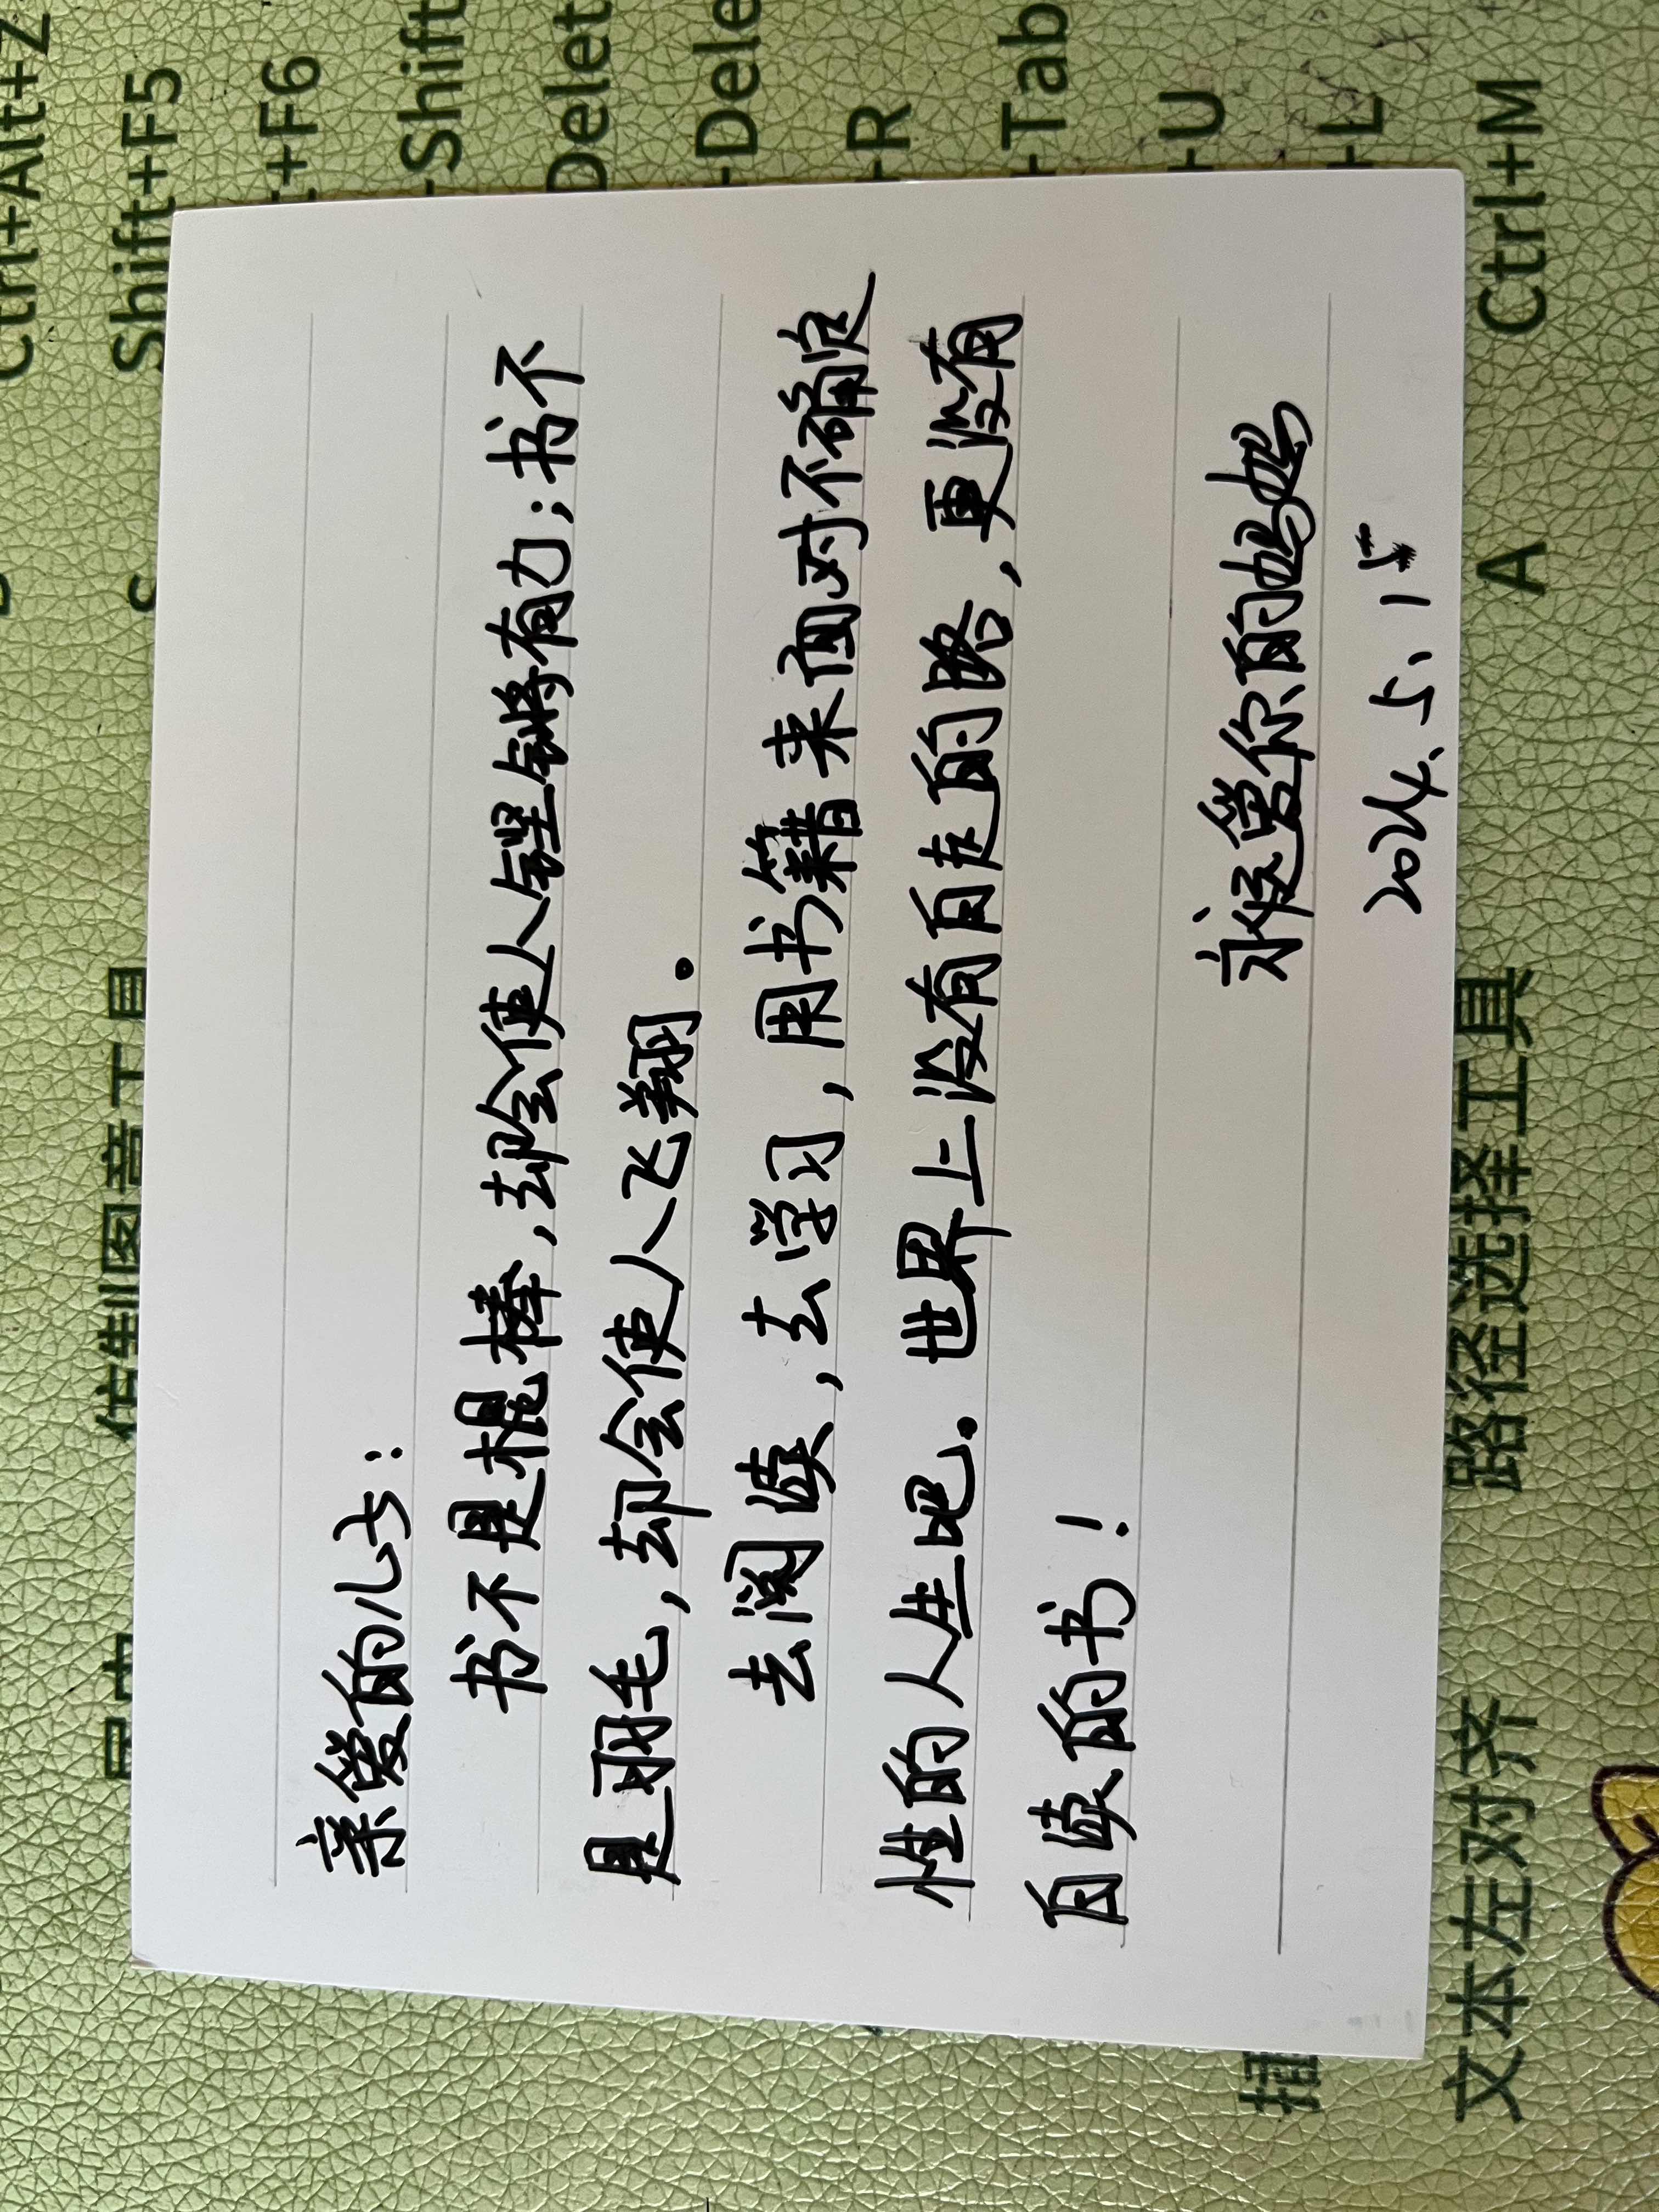 Ctrl+Alt+Z
仿制图章工具 S Shift+F5
+F6
Shift
亲爱的儿子:
书不是棍棒,却会使人铿锵有力;书不
是羽毛,却会使人飞翔。
去阅读,去学习,用书籍来面对不确定
性的人生吧。世界上没有白走的路,更没有
白读的书!
永远爱你的妈妈
2024.5.15
+R
+Tab
+U
+L
文本左对齐 路径选择工具 A Ctrl+M